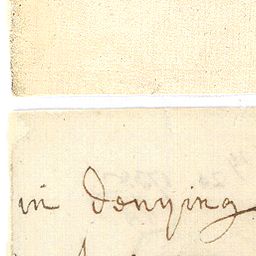 in denying